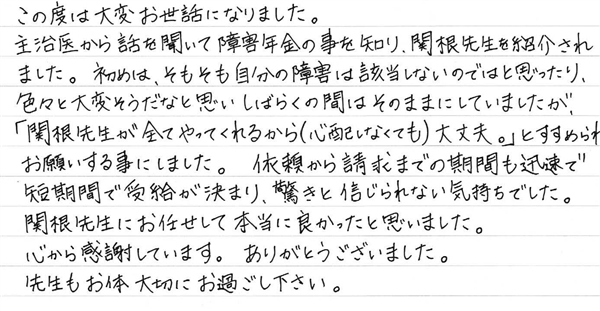 この度は大変お世話になりました。
主治医から話を聞いて障害年金の事を知り、関根先生を紹介され
ました。初めは、そもそも自分の障害は該当しないのではと思ったり、
色々と大変そうだなと思いしばらくの間はそのままにしていましたが、
「関根先生が全てやってくれるから(心配しなくても)大丈夫。」とすすめられ
お願いする事にしました。 依頼から請求までの期間も迅速で
短期間で受給が決まり、驚きと信じられない気持ちでした。
関根先生にお任せして本当に良かったと思いました。
心から感謝しています。 ありがとうございました。
先生もお体大切にお過ごし下さい。